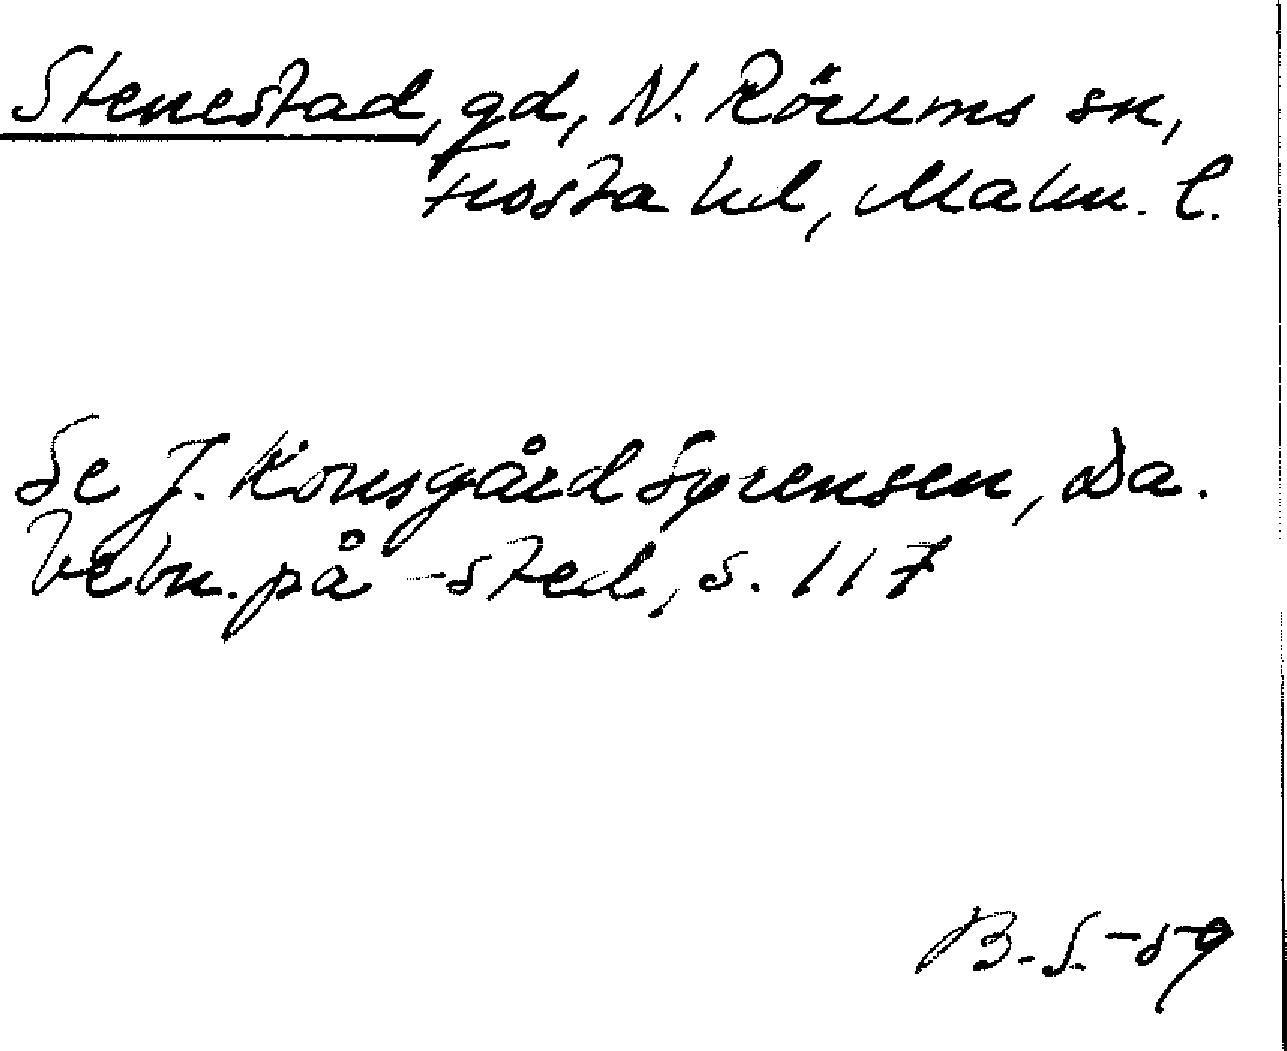 Stenestad, gd, N. Rörums sn,
Frosta hd, Malm. l.
Se J. Kousgård Sørensen, Da.
bebn. på -sted, s. 117
B. S. -59